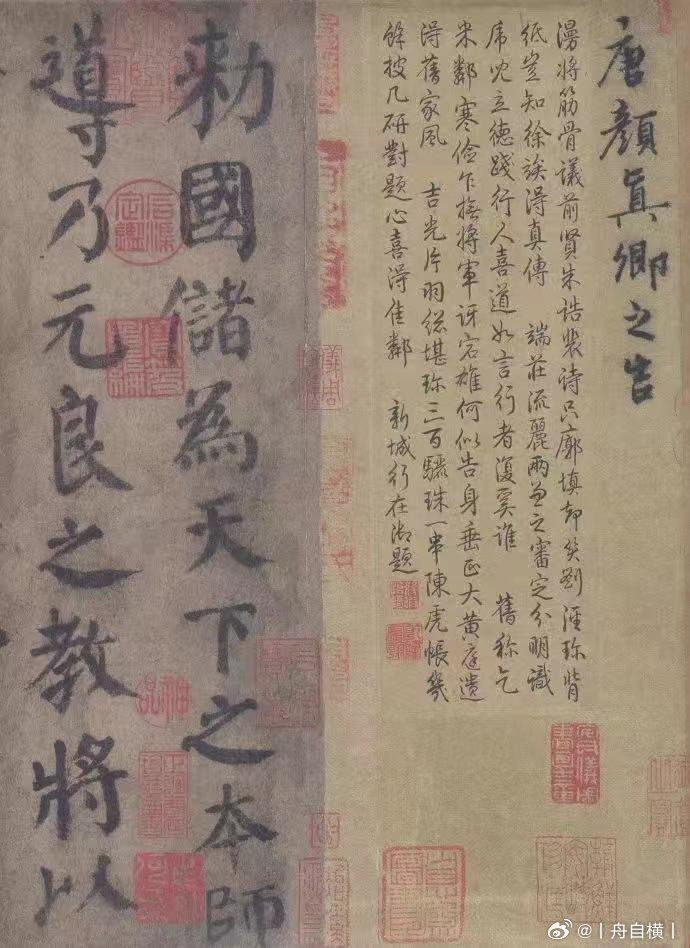 唐顏真卿之告
漫將筋骨議前賢朱誥裴詩只廓填却笑劉涇珎背
紙豈知徐誒得真傳 端莊流麗兩兼之審定分明識
席兒立德踐行人喜道如言行者復奚誰 舊称乞
米鄰寒儉乍撫將軍訝宕雄何似告身垂正大黄庭遺
得舊家風 吉光片羽総堪珎三百驪珠一串陳虎帳幾
餘披几研對題心喜得佳鄰 新城行在御題
勑國儲為天下之本師
導乃元良之教將以
@丨舟自横丨